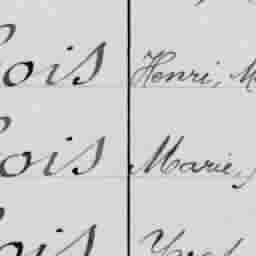 ois Henri, M
ois Marie,
ois